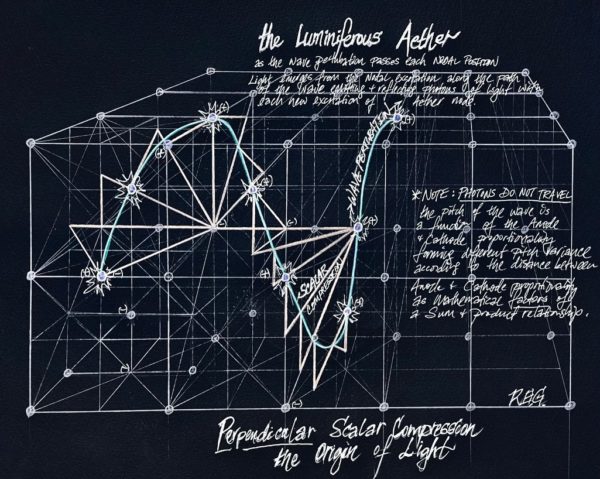 the Luminiferous Aether
as the wave perturbation passes each NODAL POSITION
Light Emerges from the Nodal Excitation along the path
of the wave emitting + reflecting photons of Light with
each new excitation of Aether node.
WAVE PERTURBATION
* NOTE: PHOTONS DO NOT TRAVEL
the pitch of the wave is
a function of the Anode
& Cathode proportionality
forming different pitch variance
according to the distance between
Anode & Cathode proportionality
as Mathematical factors of
a Sum & product relationship.
SCALAR
COMPRESSION
R.E.G.
Perpendicular Scalar Compression
the Origin of Light